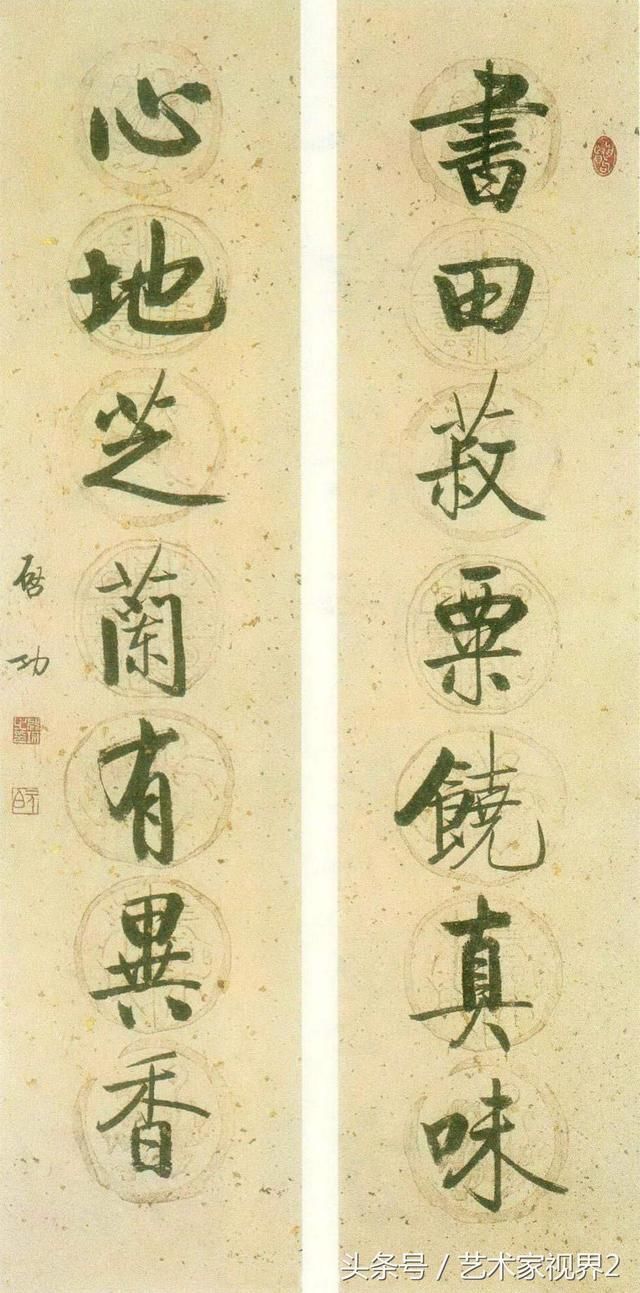 書田菽粟饒真味
心地芝蘭有異香
啓功
头条号 / 艺术家视界2